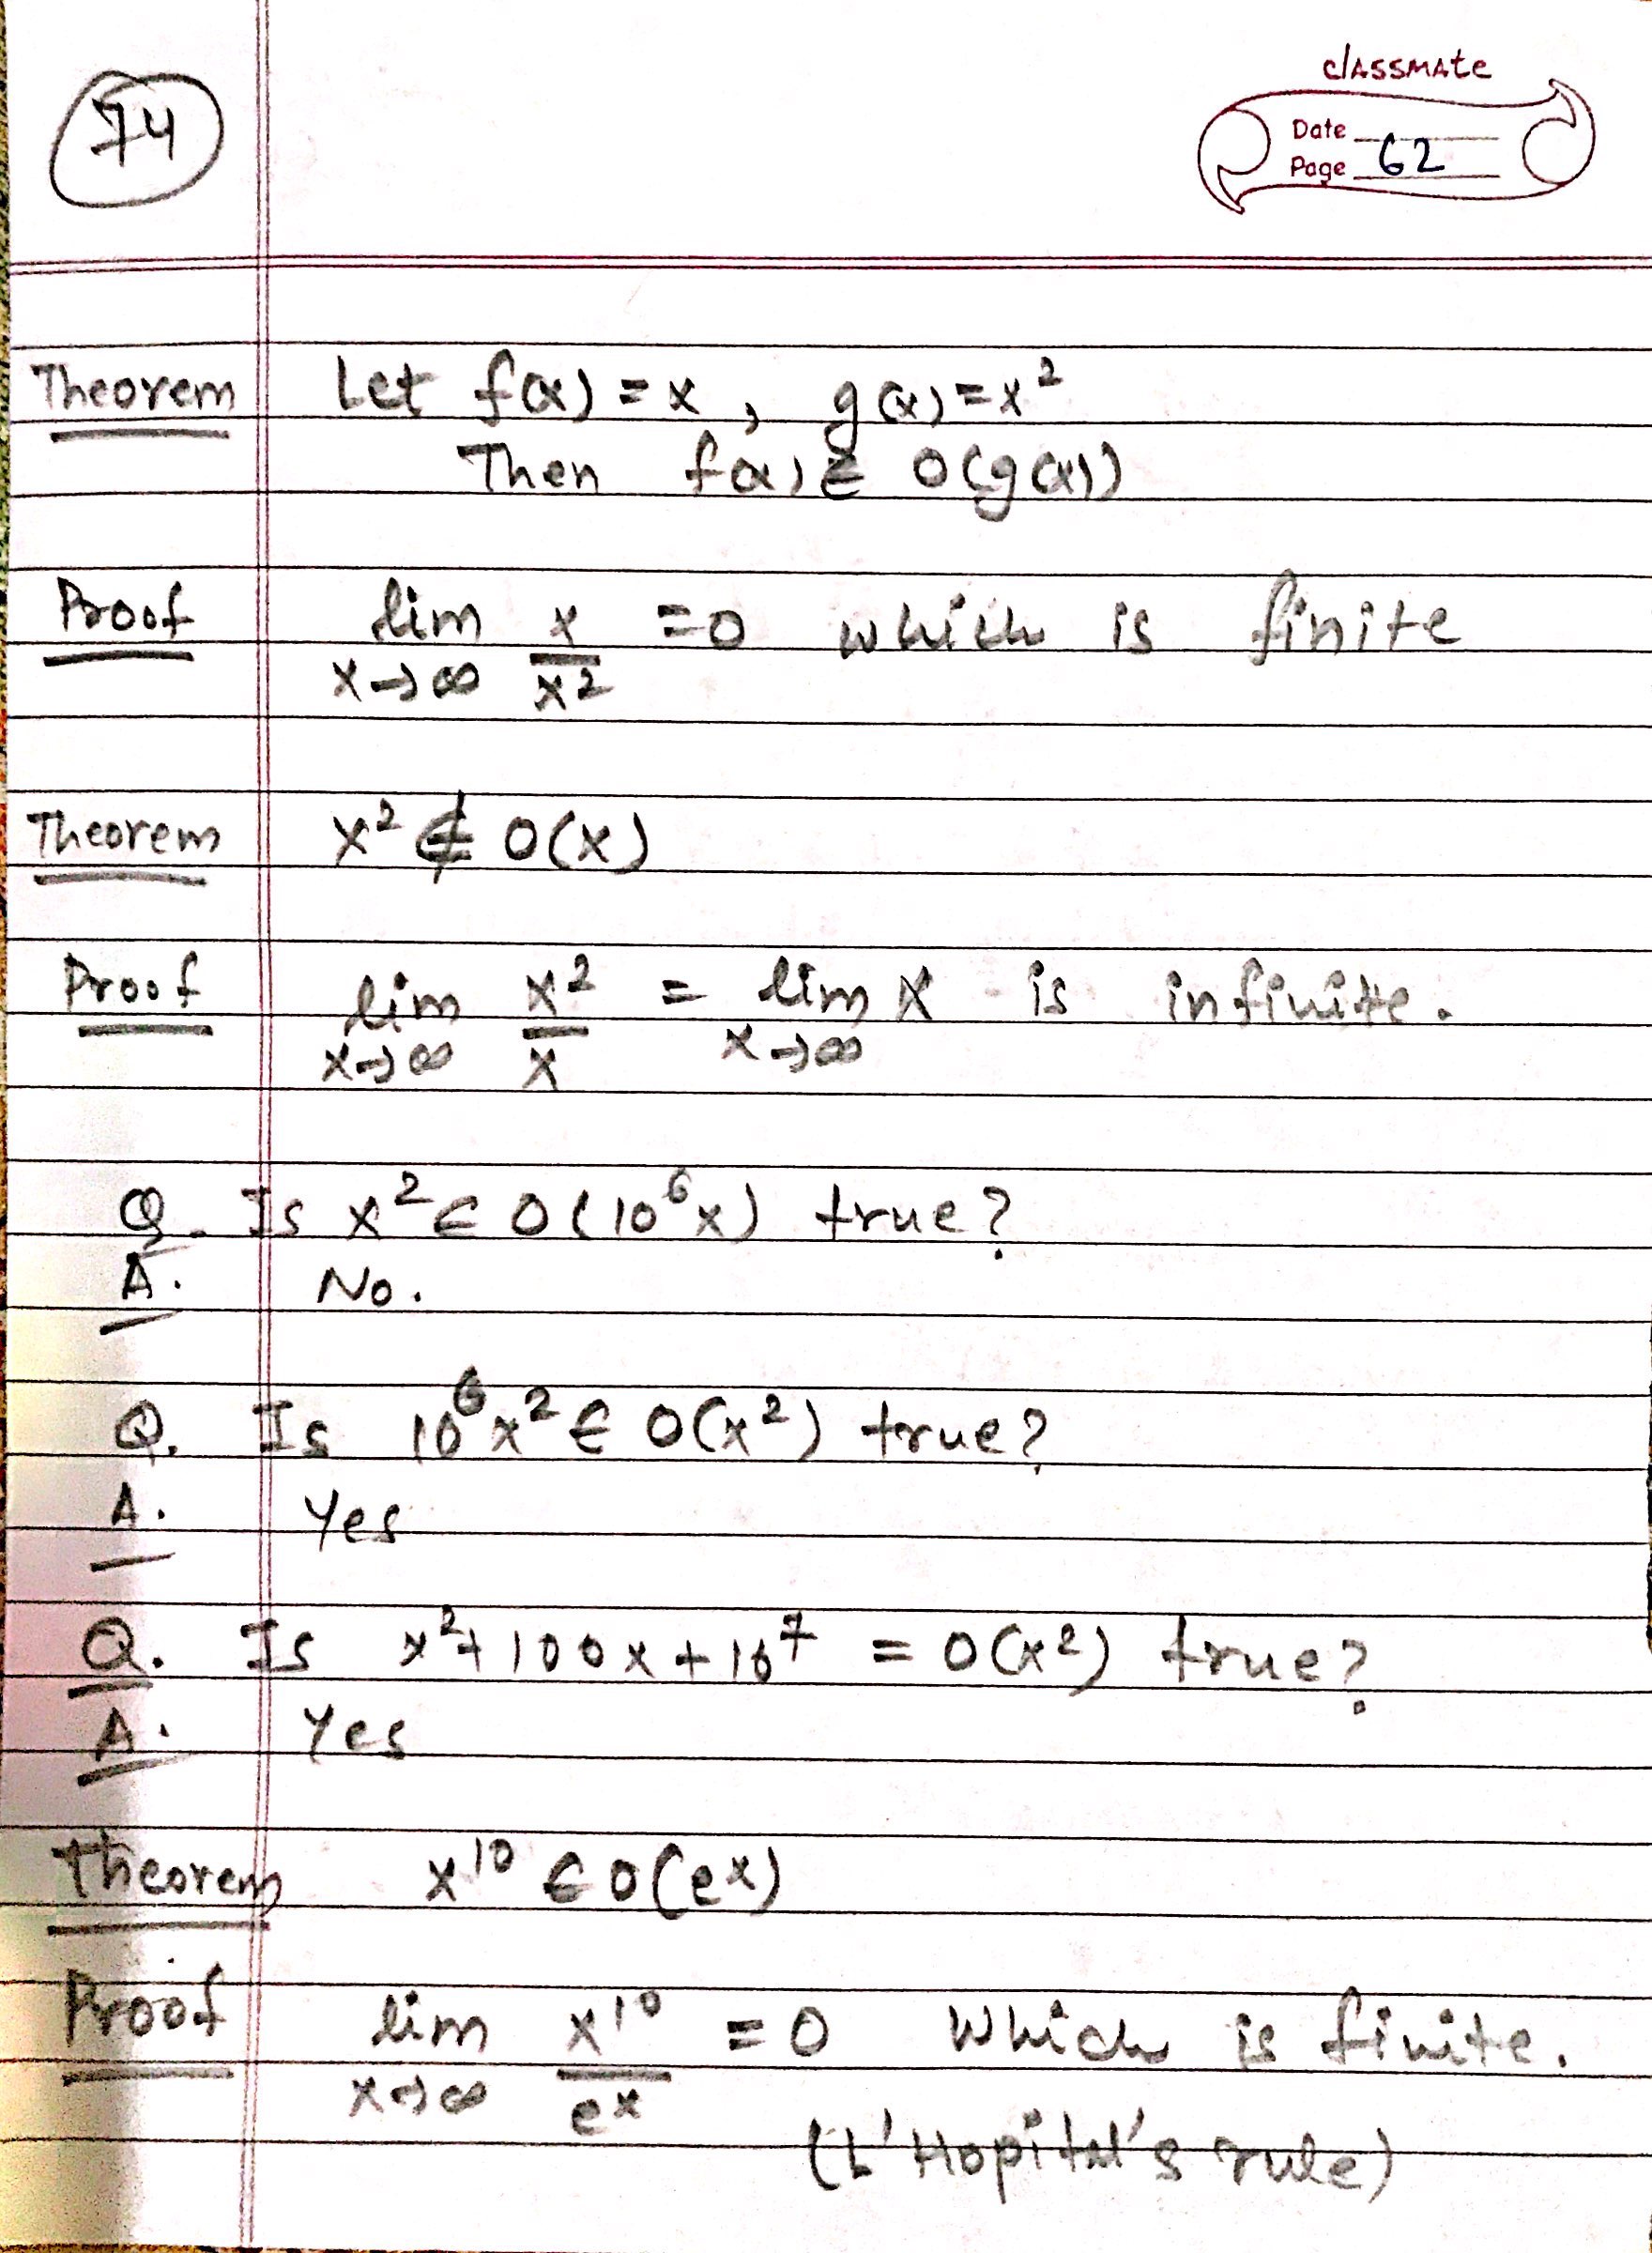 74
classmate
Date
Page 62
Theorem Let f(x) = x , g(x) = x²
Then f(x) ∈ O(g(x))
Proof lim x→∞ x/x² = 0 which is finite
Theorem x² ∉ O(x)
Proof lim x→∞ x²/x = lim x→∞ x is infinite.
Q. Is x² ∈ O(10⁶x) true?
A. No.
Q. Is 10⁶x² ∈ O(x²) true?
A. Yes
Q. Is x² + 100x + 10⁷ = O(x²) true?
A. Yes
Theorem x¹⁰ ∈ O(eˣ)
Proof lim x→∞ x¹⁰/eˣ = 0 which is finite.
(L'Hopital's rule)